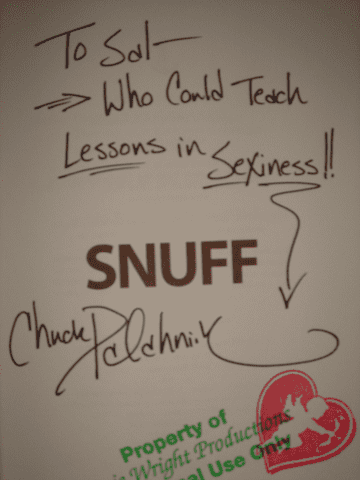 To Sal—
⇒ Who Could Teach
Lessons in Sexiness!!
SNUFF
Chuck Palahniuk
Property of
Wright Productions
Use Only